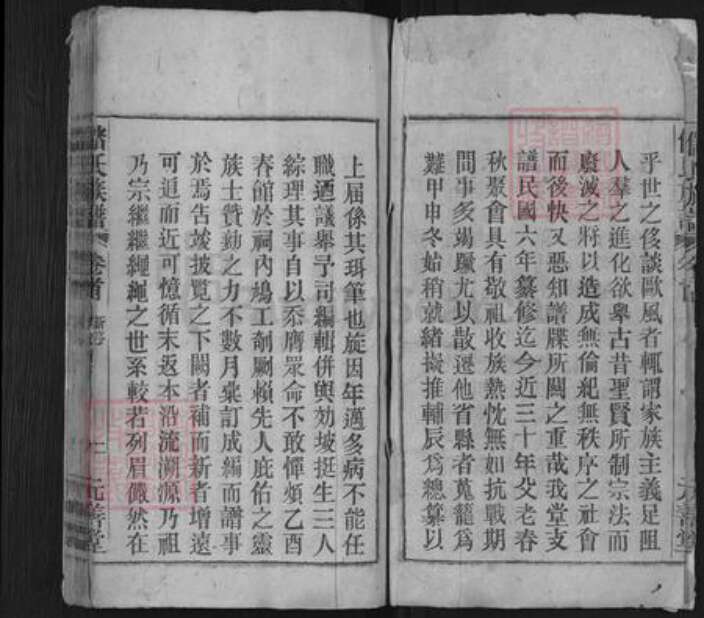 乎世之侈談歐風者輒謂家族主義足阻
人羣之進化欲舉古昔聖賢所制宗法而
廢滅之將以造成無倫紀無秩序之社會
而後快又惡知譜牒所關之重哉我堂支
譜民國六年纂修迄今近三十年父老春
秋聚會具有敬祖收族熱忱無如抗戰期
間事多竭蹶尤以散遷他省縣者蒐籠爲
難甲申冬始稍就緒擬推輔辰爲總纂以
元善堂
上屆係其珥筆也旋因年邁多病不能任
職迺議舉予司編輯併與効坡挺生三人
綜理其事自以忝膺眾命不敢憚煩乙酉
春館於祠內鳩工剞劂賴先人庇佑之靈
族士贊勷之力不數月彙訂成編而譜事
於焉告竣披覽之下闕者補而新者增遠
可追而近可憶循末返本沿流溯源乃祖
乃宗繼繼繩繩之世系較若列眉儼然在
氏族譜 卷首
元善堂